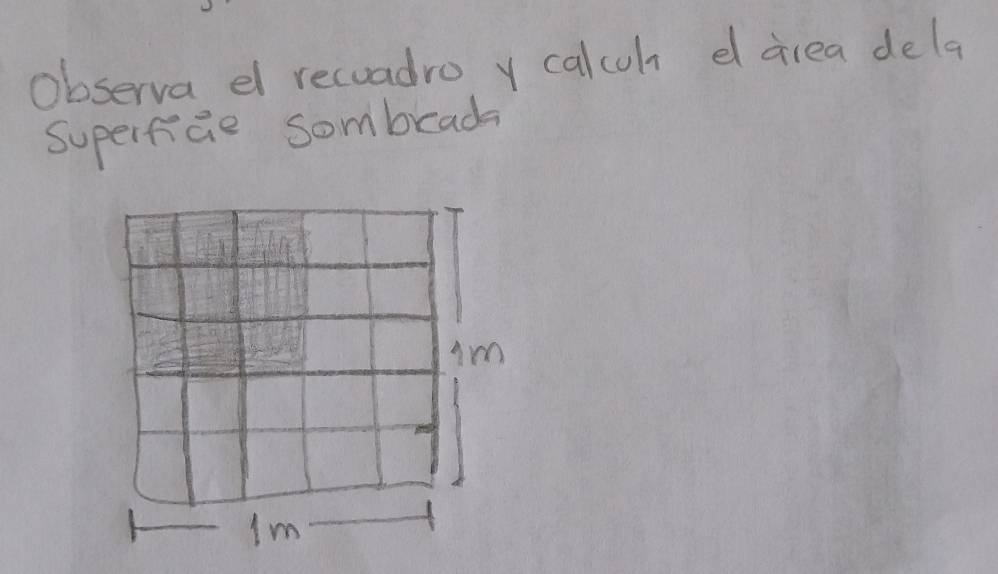 Observa el recuadro y calcula el área dela
Superficie sombreada
1m
1m